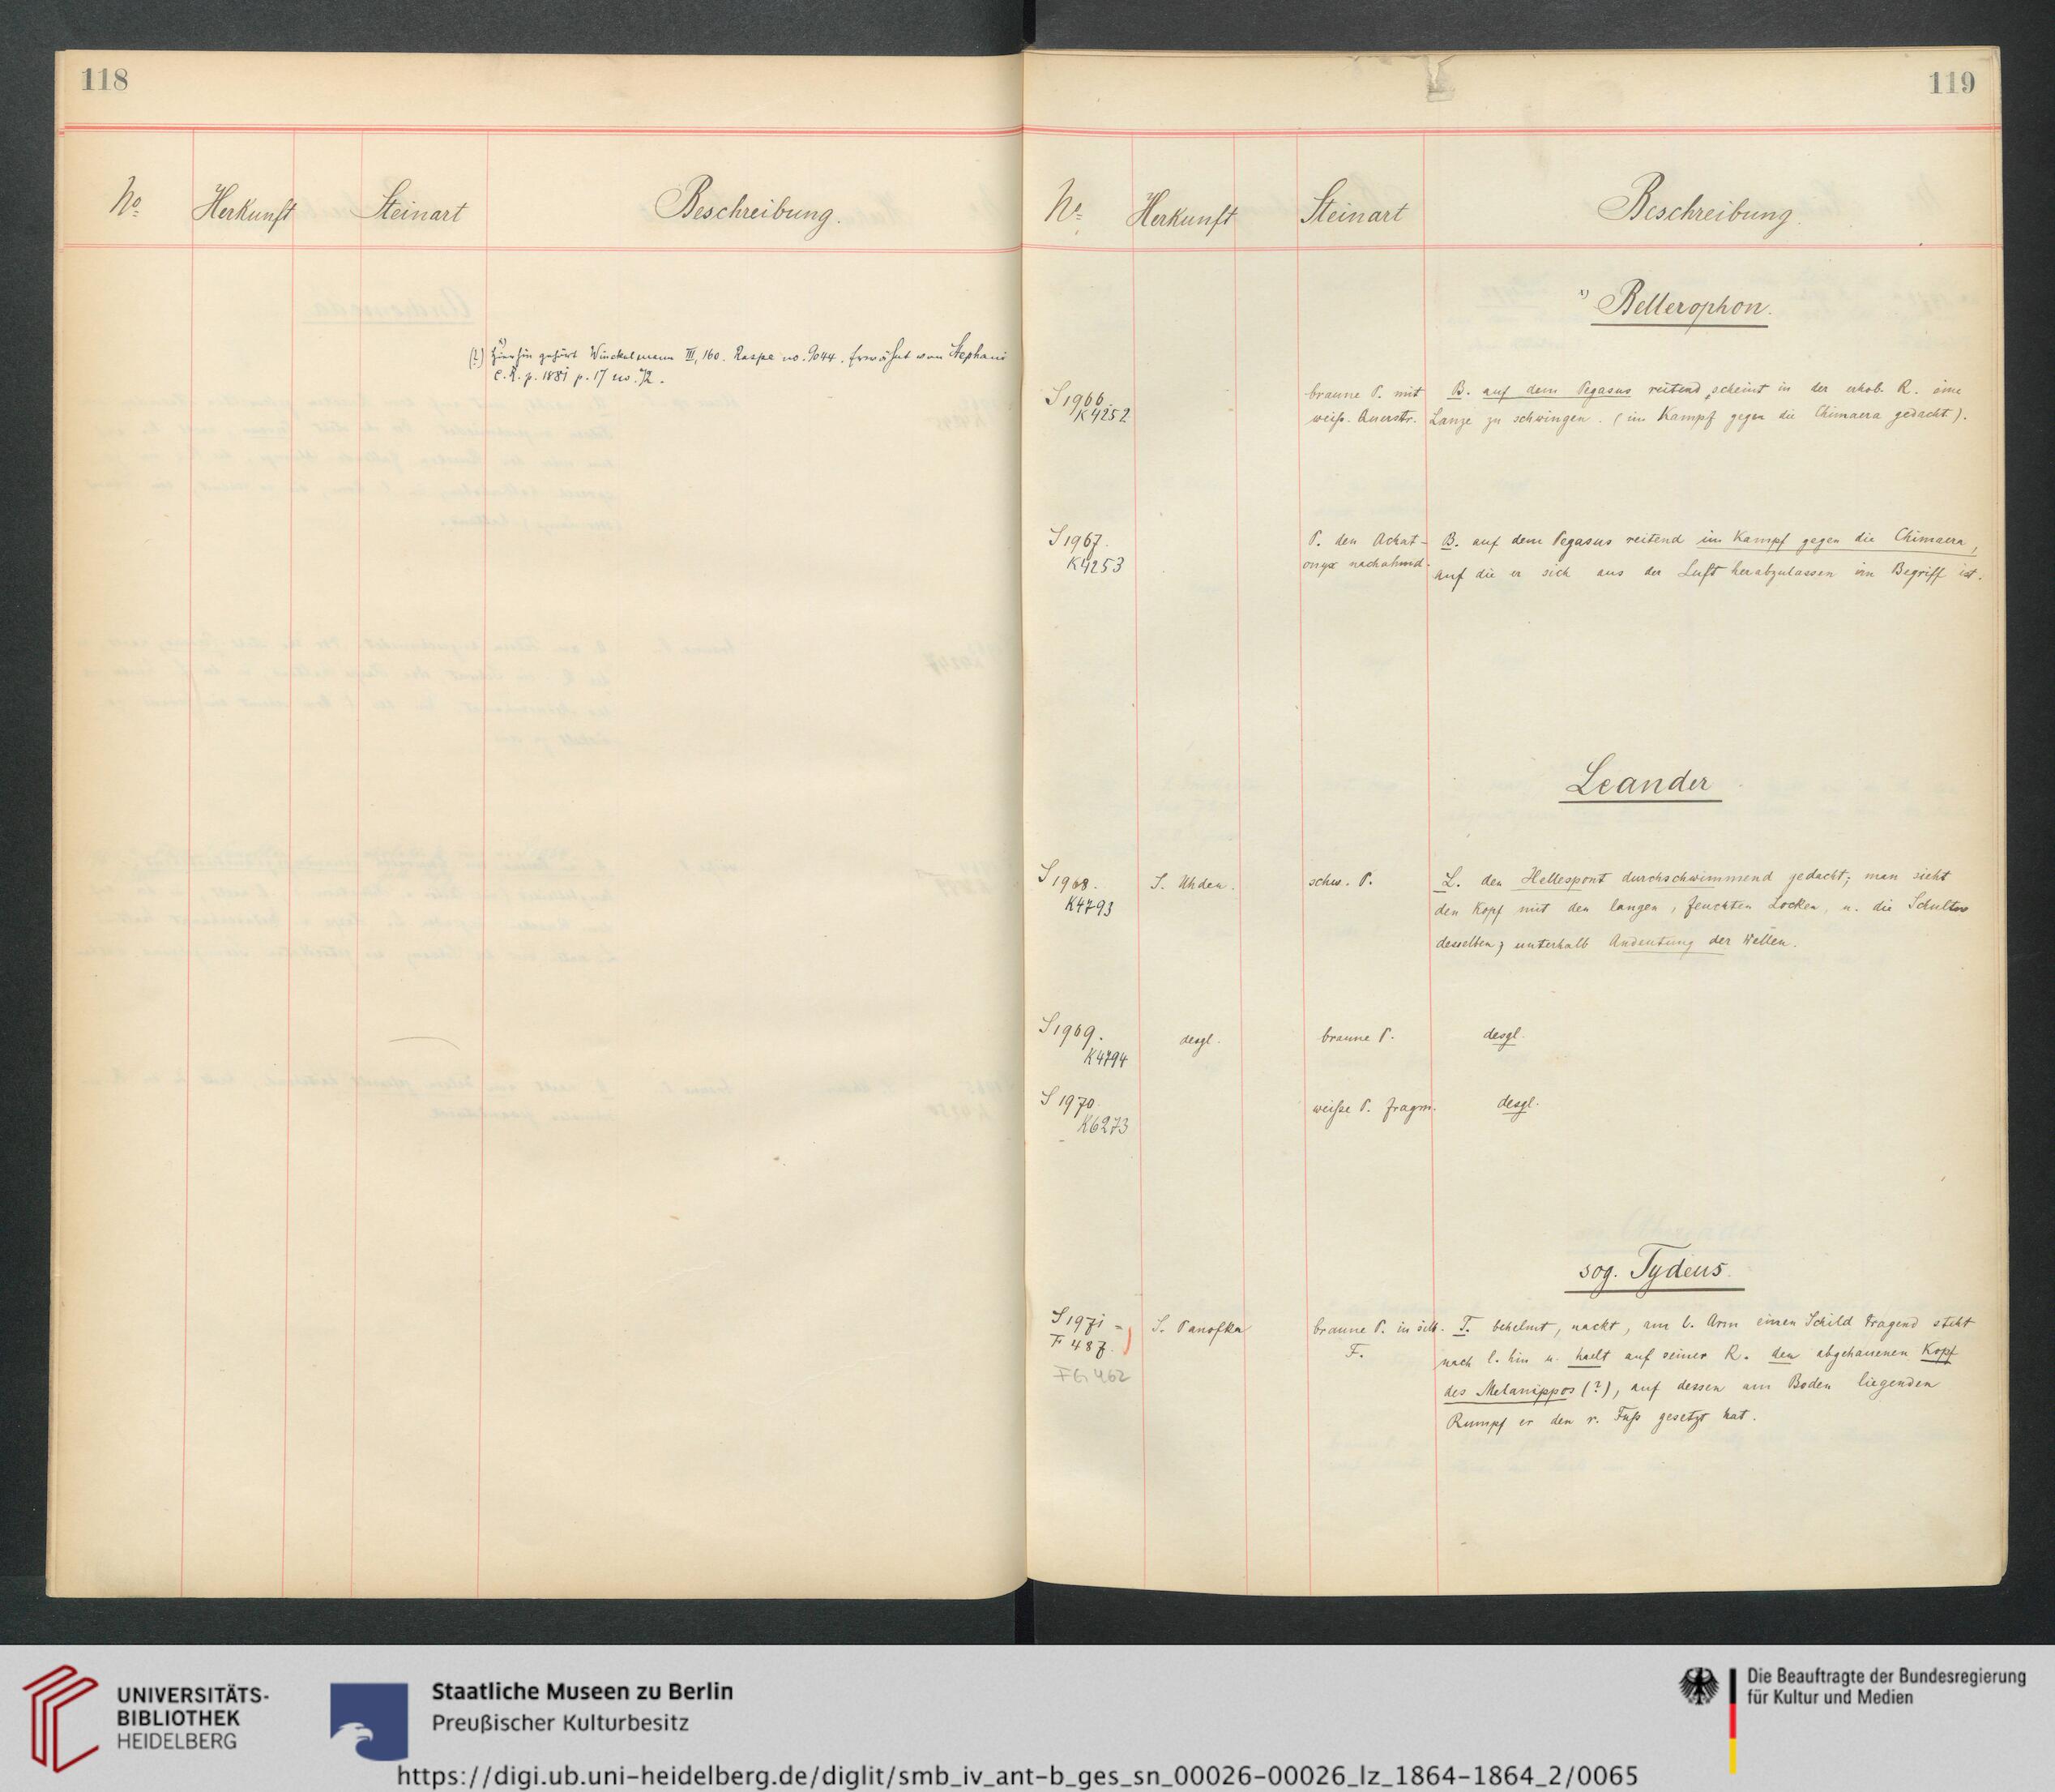 118
No. Herkunft Steinart Beschreibung.
(?) x) Hierhin gehört Winckelmann III, 160. Raspe no. 9044. Erwähnt von Stephani
C. R. p. 1881 p. 17 no. 72.
119
No. Herkunft Steinart Beschreibung.
x) Bellerophon.
S 1966. braune P. mit B. auf dem Pegasus reitend, scheint in der erhob. R. eine
K4252 weiß. Querstr. Lanze zu schwingen. (im Kampf gegen die Chimaera gedacht).
S 1967. P. den Achat- B. auf dem Pegasus reitend im Kampf gegen die Chimaera,
K4253 onyx nachahmd. auf die er sich aus der Luft herabzulassen im Begriff ist.
Leander
S 1968. S. Uhden. schw. P. L. den Hellespont durchschwimmend gedacht; man sieht
K4793 den Kopf mit den langen, feuchten Locken, u. die Schulter
desselben; unterhalb Andeutung der Wellen.
S 1969. desgl. braune P. desgl.
K4794
S 1970. weiße P. fragm. desgl.
K6273
sog. Tydeus.
S 1971 = S. Panofka braune P. in silb. T. behelmt, nackt, am l. Arm einen Schild tragend steht
F 487. F. nach l. hin u. haelt auf seiner R. den abgehauenen Kopf
FG 462 des Melanippos (?), auf dessen am Boden liegenden
Rumpf er den r. Fuß gesetzt hat.
UNIVERSITÄTS-
BIBLIOTHEK
HEIDELBERG
Staatliche Museen zu Berlin
Preußischer Kulturbesitz
Die Beauftragte der Bundesregierung
für Kultur und Medien
https://digi.ub.uni-heidelberg.de/diglit/smb_iv_ant-b_ges_sn_00026-00026_lz_1864-1864_2/0065